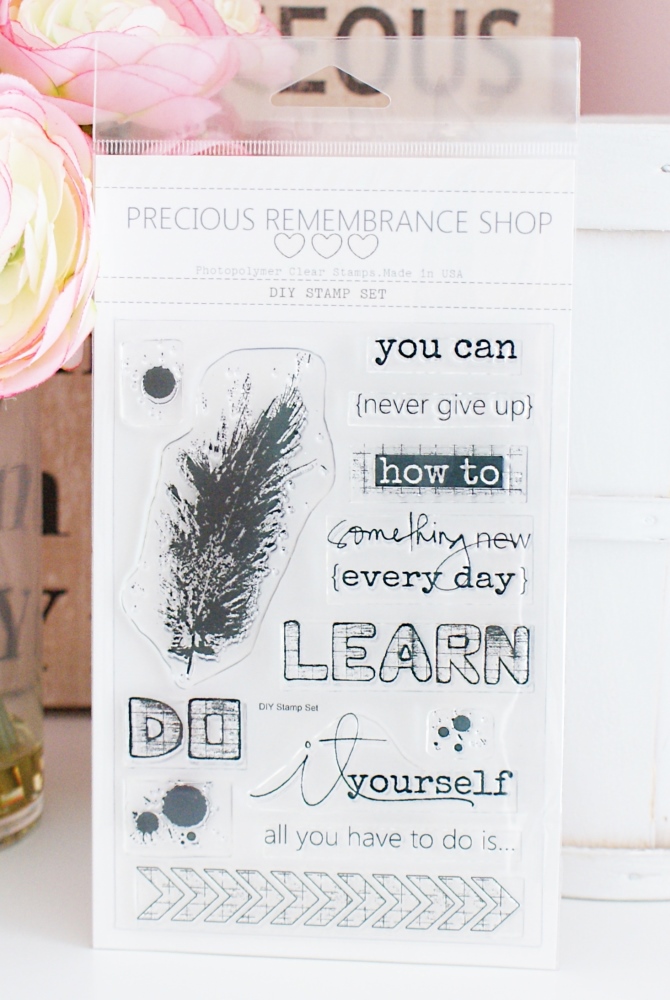 EOUS
PRECIOUS REMEMBRANCE SHOP
Photopolymer Clear Stamps.Made in USA
DIY STAMP SET
you can
{never give up}
how to
something new
{every day}
LEARN
DO
DIY Stamp Set
it yourself
all you have to do is...